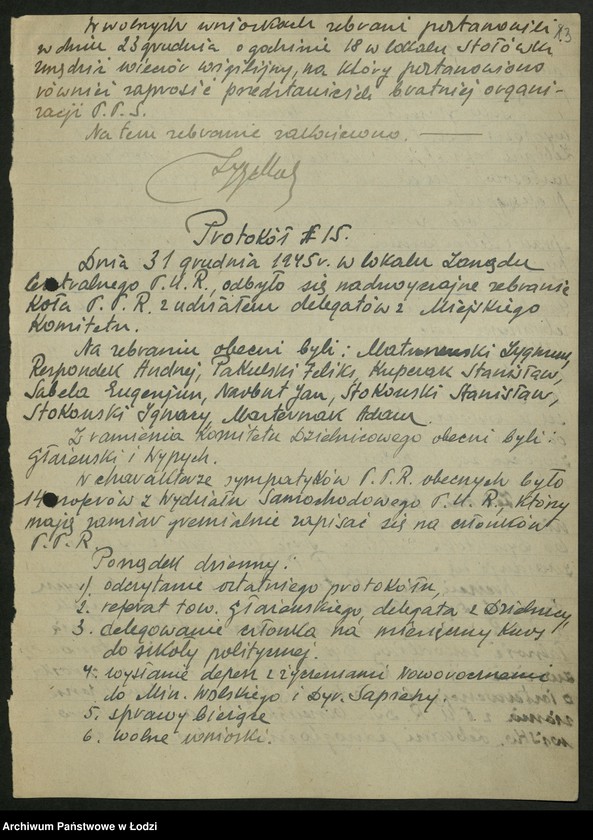 W wolnych wnioskach zebrani postanowili
w dniu 23 grudnia o godzinie 18 w lokalu Stołówki
urządzić wieczór wigilijny, na który postanowiono
również zaprosić przedstawicieli bratniej organi-
zacji P.P.S.
Na tem zebranie zakończono.
Protokół # 15.
Dnia 31 grudnia 1945 r. w lokalu Zarządu
Centralnego P.U.R., odbyło się nadzwyczajne zebranie
Koła P.P.R. z udziałem delegatów z Miejskiego
Komitetu.
Na zebraniu obecni byli: Zygmunt,
Respondek Andrzej, Pakulski Feliks, Kupczak Stanisław,
Sabela Eugenjusz, Narbut Jan, Stokowski Stanisław,
Stokowski Ignacy, Adam.
Z ramienia Komitetu Dzielnicowego obecni byli:
i Wypych.
W charakterze sympatyków P.P.R. obecnych było
14 szoferów z Wydziału Samochodowego P.U.R., którzy
mają zamiar gremialnie zapisać się na członków
P.P.R
Porządek dzienny:
1) odczytanie ostatniego protokółu,
2. referat tow. delegata z Dzielnicy,
3. delegowanie członka na miesięczny kurs
do szkoły politycznej.
4. wysłanie depesz z życzeniami Noworocznemi
do Min. Wolskiego i Dyr. Sapiehy.
5. sprawy bieżące
6. wolne wnioski.
Archiwum Państwowe w Łodzi